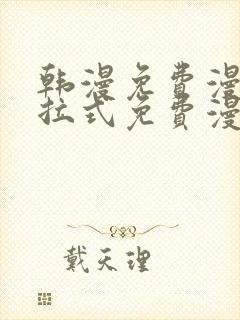 韩漫免费漫
拉式免费漫
戴天理